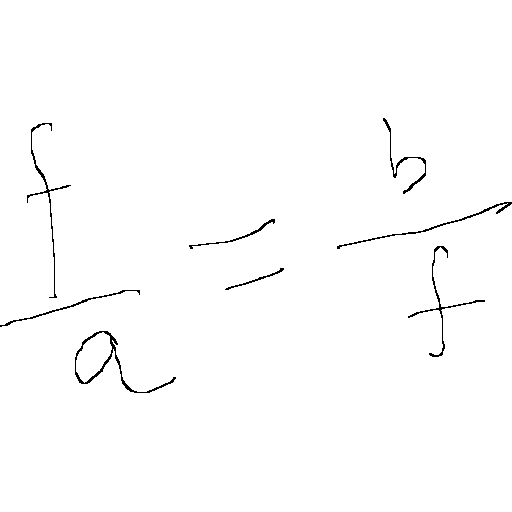 \frac{f}{a} = \frac{b}{f}